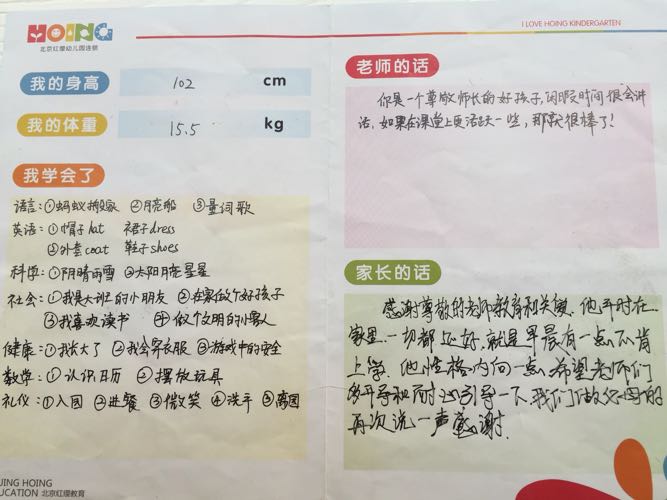 HOING
北京红缨幼儿园连锁
我的身高 102 cm
我的体重 15.5 kg
我学会了
语言:①蚂蚁搬家 ②月亮船 ③量词歌
英语:①帽子hat 裙子dress
②外套coat 鞋子shoes
科学:①阴晴雨雪 ②太阳月亮星星
社会:①我是大班的小朋友 ②在家做个好孩子
③我喜欢读书 ④做个文明的小客人
健康:①我长大了 ②我会穿衣服 ③游戏中的安全
数学:①认识日历 ②摆放玩具
礼仪:①入园 ②进餐 ③微笑 ④洗手 ⑤离园
JING HOING
UCATION 北京红缨教育
I LOVE HOING KINDERGARTEN
老师的话
你是一个尊敬师长的好孩子,闲暇时间很会讲
话,如果在课堂上更活跃一些,那就很棒了!
家长的话
感谢尊敬的老师教育和关爱。他平时在
家里一切都还好,就是早晨有一点不肯
上学。他性格内向一点,希望老师们
多开导和耐心引导一下,我们做父母的
再次说一声感谢.